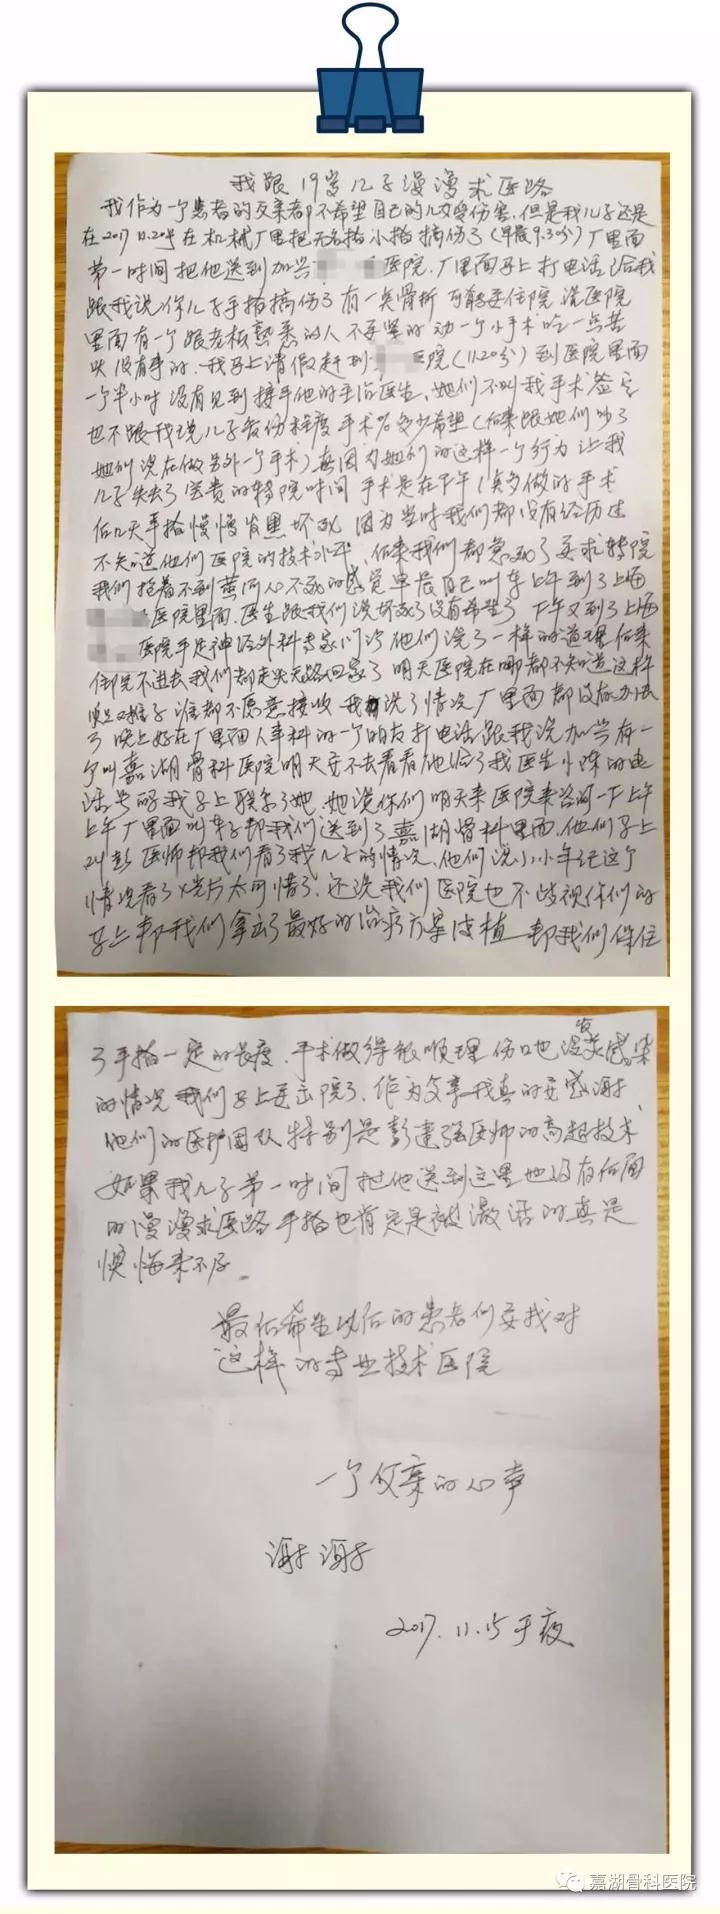 我跟19岁儿子漫漫求医路
我作为一个患者的父亲都不希望自己的儿女受伤害,但是我儿子还是
在2017 11.2 在机械厂里把无名指小指搞伤了(早晨9.30分)厂里面
第一时间把他送到加兴 医院.厂里面马上打电话给我
跟我说你儿子手指搞伤了有一点骨折可能要住院 说医院
里面有一个跟老板熟悉的人不要紧的动一个小手术吃一点苦
头没有事的.我马上请假赶到 医院(11.20分)到医院里面
一个半小时没有见到接手他的主治医生、她们不叫我手术签字
也不跟我说儿子受伤程度手术%多少希望(后来跟她们吵了
她们说在做另外一个手术)真因为她们的这样一个行为让我
儿子失去了宝贵的转院时间 手术是在下午1点多做的手术
后几天手指慢慢发黑坏死 因为当时我们都没有经历过
不知道他们医院的技术水平、后来我们都急死了要求转院
我们抱着不到黄河心不死的感觉早晨自己叫车上午到了上海
医院里面.医生跟我们说坏死了没有希望了 下午又到了上海
医院手足神经外科专家门诊他们说了一样的道理后来
住院不进去我们都走头无路回家了 明天医院在哪都不知道这样
谁都不愿意接收 我说了情况厂里面都没有办法
了 晚上好在厂里面人事科的一个朋友打电话跟我说加兴有一
个叫嘉湖骨科医院明天要不去看看他给了我医生小陈的电
话号码我马上联系了她.她说你们明天来医院来咨询一下上午
上午厂里面叫车子帮我们送到了嘉湖骨科里面.他们马上
叫彭医师帮我们看了我儿子的情况.他们说小小年纪这个
情况看了X光片太可惜了.还说我们医院也不歧视你们的
马上帮我们拿出了最好的治疗方案皮植 帮我们保住
了手指一定的长度.手术做得很顺理 伤口也没发炎感染
的情况 我们马上要出院了.作为父亲我真的要感谢
他们的医护团队特别是彭建强医师的高超技术
如果我儿子第一时间把他送到这里也没有后面
的漫漫求医路手指也肯定是被激活的真是
懊悔来不及。
最后希望以后的患者们要找对
这样的专业技术医院
一个父亲的心声
谢谢
2017.11.15于夜
嘉湖骨科医院